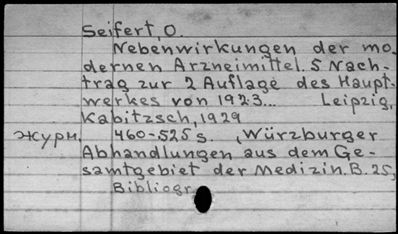 Seifert, O.
Nebenwirkungen der mo-
dernen Arzneimittel. 5 Nach-
trag zur 2 Auflage des Haupt-
werkes von 1923... Leipzig,
Kabitzsch, 1929
журн. 460-525 s. (Würzburger
Abhandlungen aus dem Ge-
samtgebiet der Medizin. B. 25,
Bibliogr.